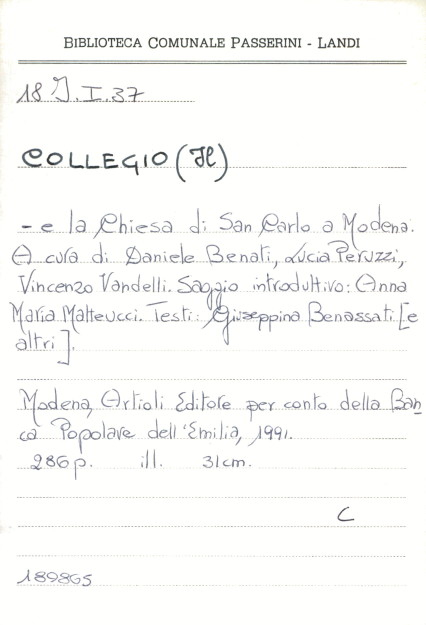 BIBLIOTECA COMUNALE PASSERINI - LANDI
18 J.I.37
COLLEGIO (Il)
- e la Chiesa di San Carlo a Modena.
A cura di Daniele Benati, Lucia Peruzzi,
Vincenzo Vandelli. Saggio introduttivo: Anna
Maria Matteucci. Testi: Giuseppina Benassati [e
altri].
Modena, Artioli Editore per conto della Ban
ca Popolare dell'Emilia, 1991.
286 p. ill. 31cm.
C
189865